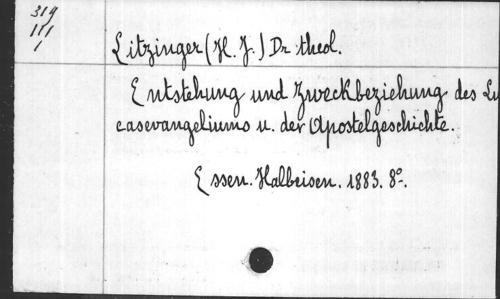 319
III
1
Litzinger (H. J.) Dr theol.
Entstehung und Zweckbeziehung des Lu
casevangeliums u. der Apostelgeschichte.
Essen. Halbeisen. 1883. 8º.